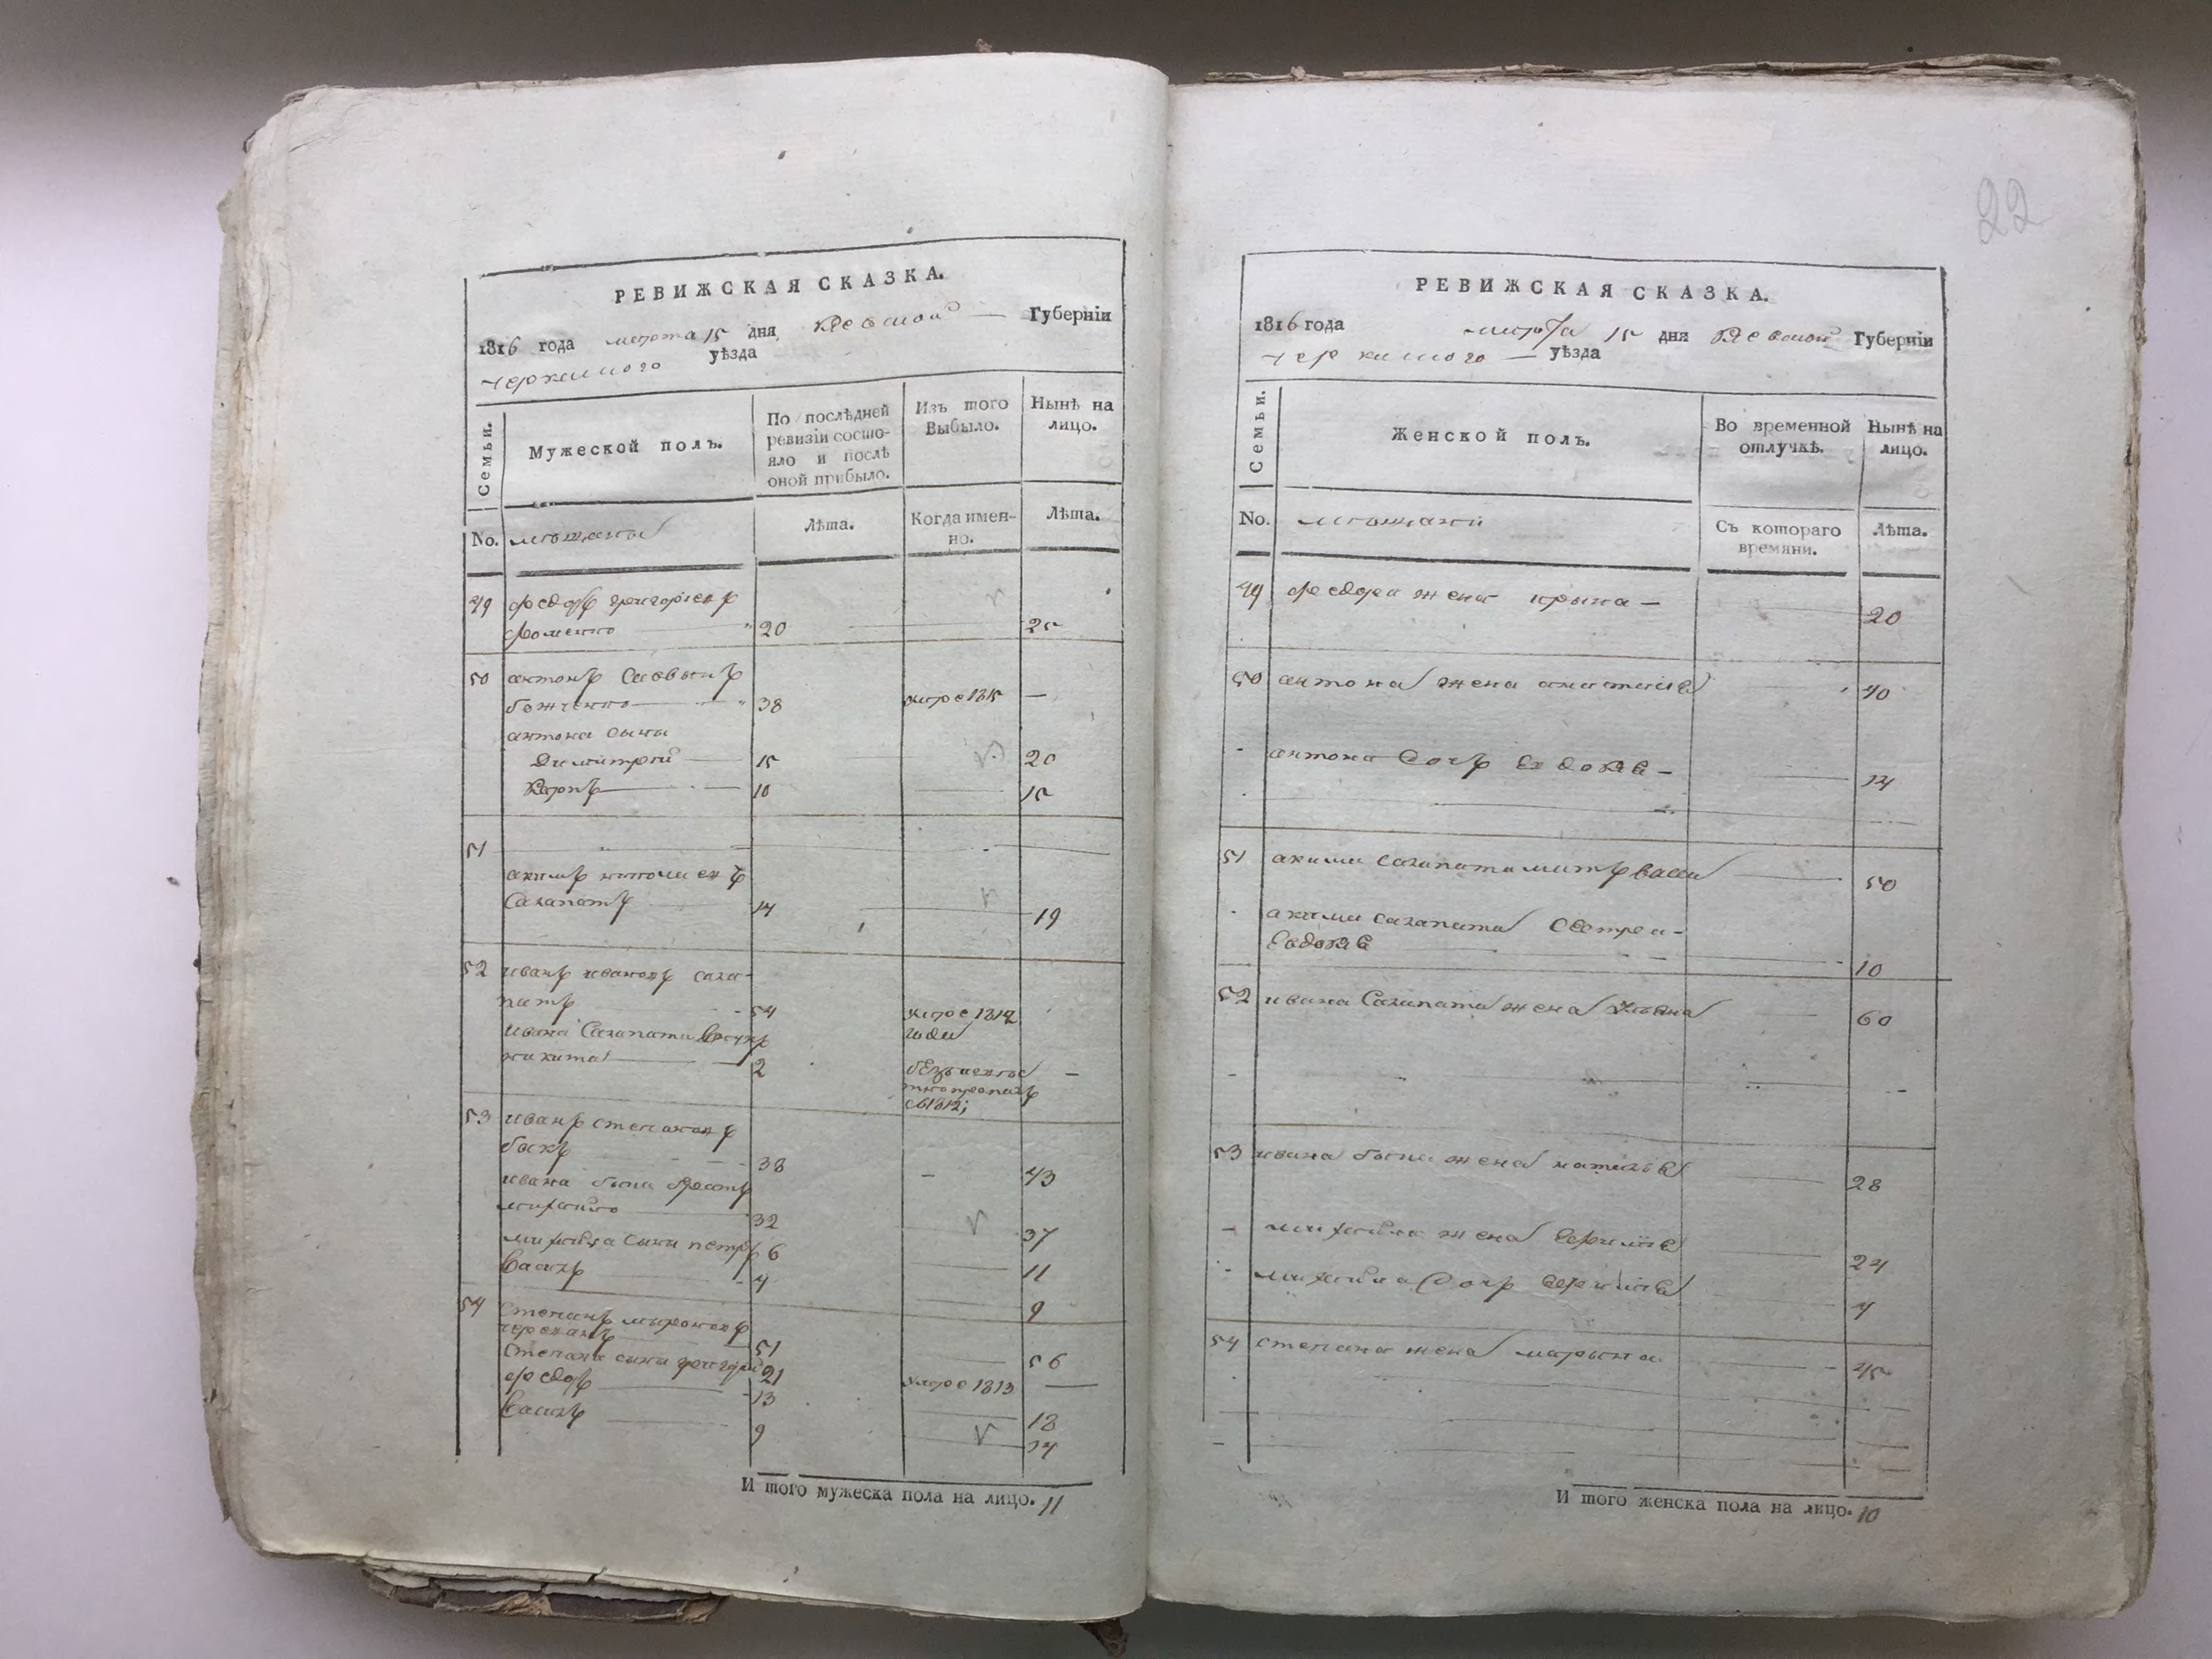 РЕВИЖСКАЯ СКАЗКА.
1816 года марта 15 дня Киевской Губерніи
черкаского уѣзда
Семьи.
Мужеской полъ.
По послѣдней
ревизіи состо-
яло и послѣ
оной прибыло.
Изъ того
Выбыло.
Нынѣ на
лицо.
No. мещане
Лѣта.
Когда имен-
но.
Лѣта.
49 федоръ григориевъ
фоменко 20 25
50 антонъ Савынъ
божченко 38 умре 1815 —
антона сыны
Димитрой 15 20
Карпъ 10 15
51
акимъ
Сахапатъ 14 19
52 иванъ ивановъ саха-
патъ 54 умре 1812
года
ивана Сахапата внукъ
никита 2 —
1812;
53 иванъ степановъ
быкъ 38 — 43
ивана быка братъ
михайло 32 37
михайла сыни петръ 6 11
Василь 4 9
54 Степанъ мироновъ
51 56
Степана сыни григорий 21 умре 1813 —
федоръ 13 18
Василь 9 14
И того мужеска пола на лицо. 11
22
РЕВИЖСКАЯ СКАЗКА.
1816 года марта 15 дня Киевской Губерніи
черкаского — уѣзда
Семьи.
Женской полъ.
Во временной
отлучкѣ.
Нынѣ на
лицо.
No. мещанки
Съ котораго
времяни.
Лѣта.
49 федора жена ирина — 20
50 антона жена анастасия 40
антона дочь Евдокия — 14
51 акима Сахапата мать васса 50
акима сахапата сестра -
Евдокия 10
52 ивана Сахапата жена Ульяна 60
53 ивана быка жена наталия 28
михайла жена Ефимия 24
михайла дочь Ефимия 4
54 степана жена марина 45
И того женска пола на лицо. 10